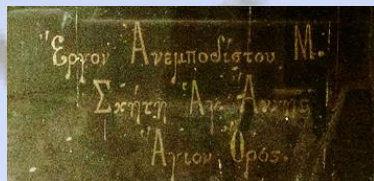 Ἔργον Ἀνεμποδίστου Μ.
Σκήτη Ἁγ. Ἄννης
Ἅγιον Ὄρος.